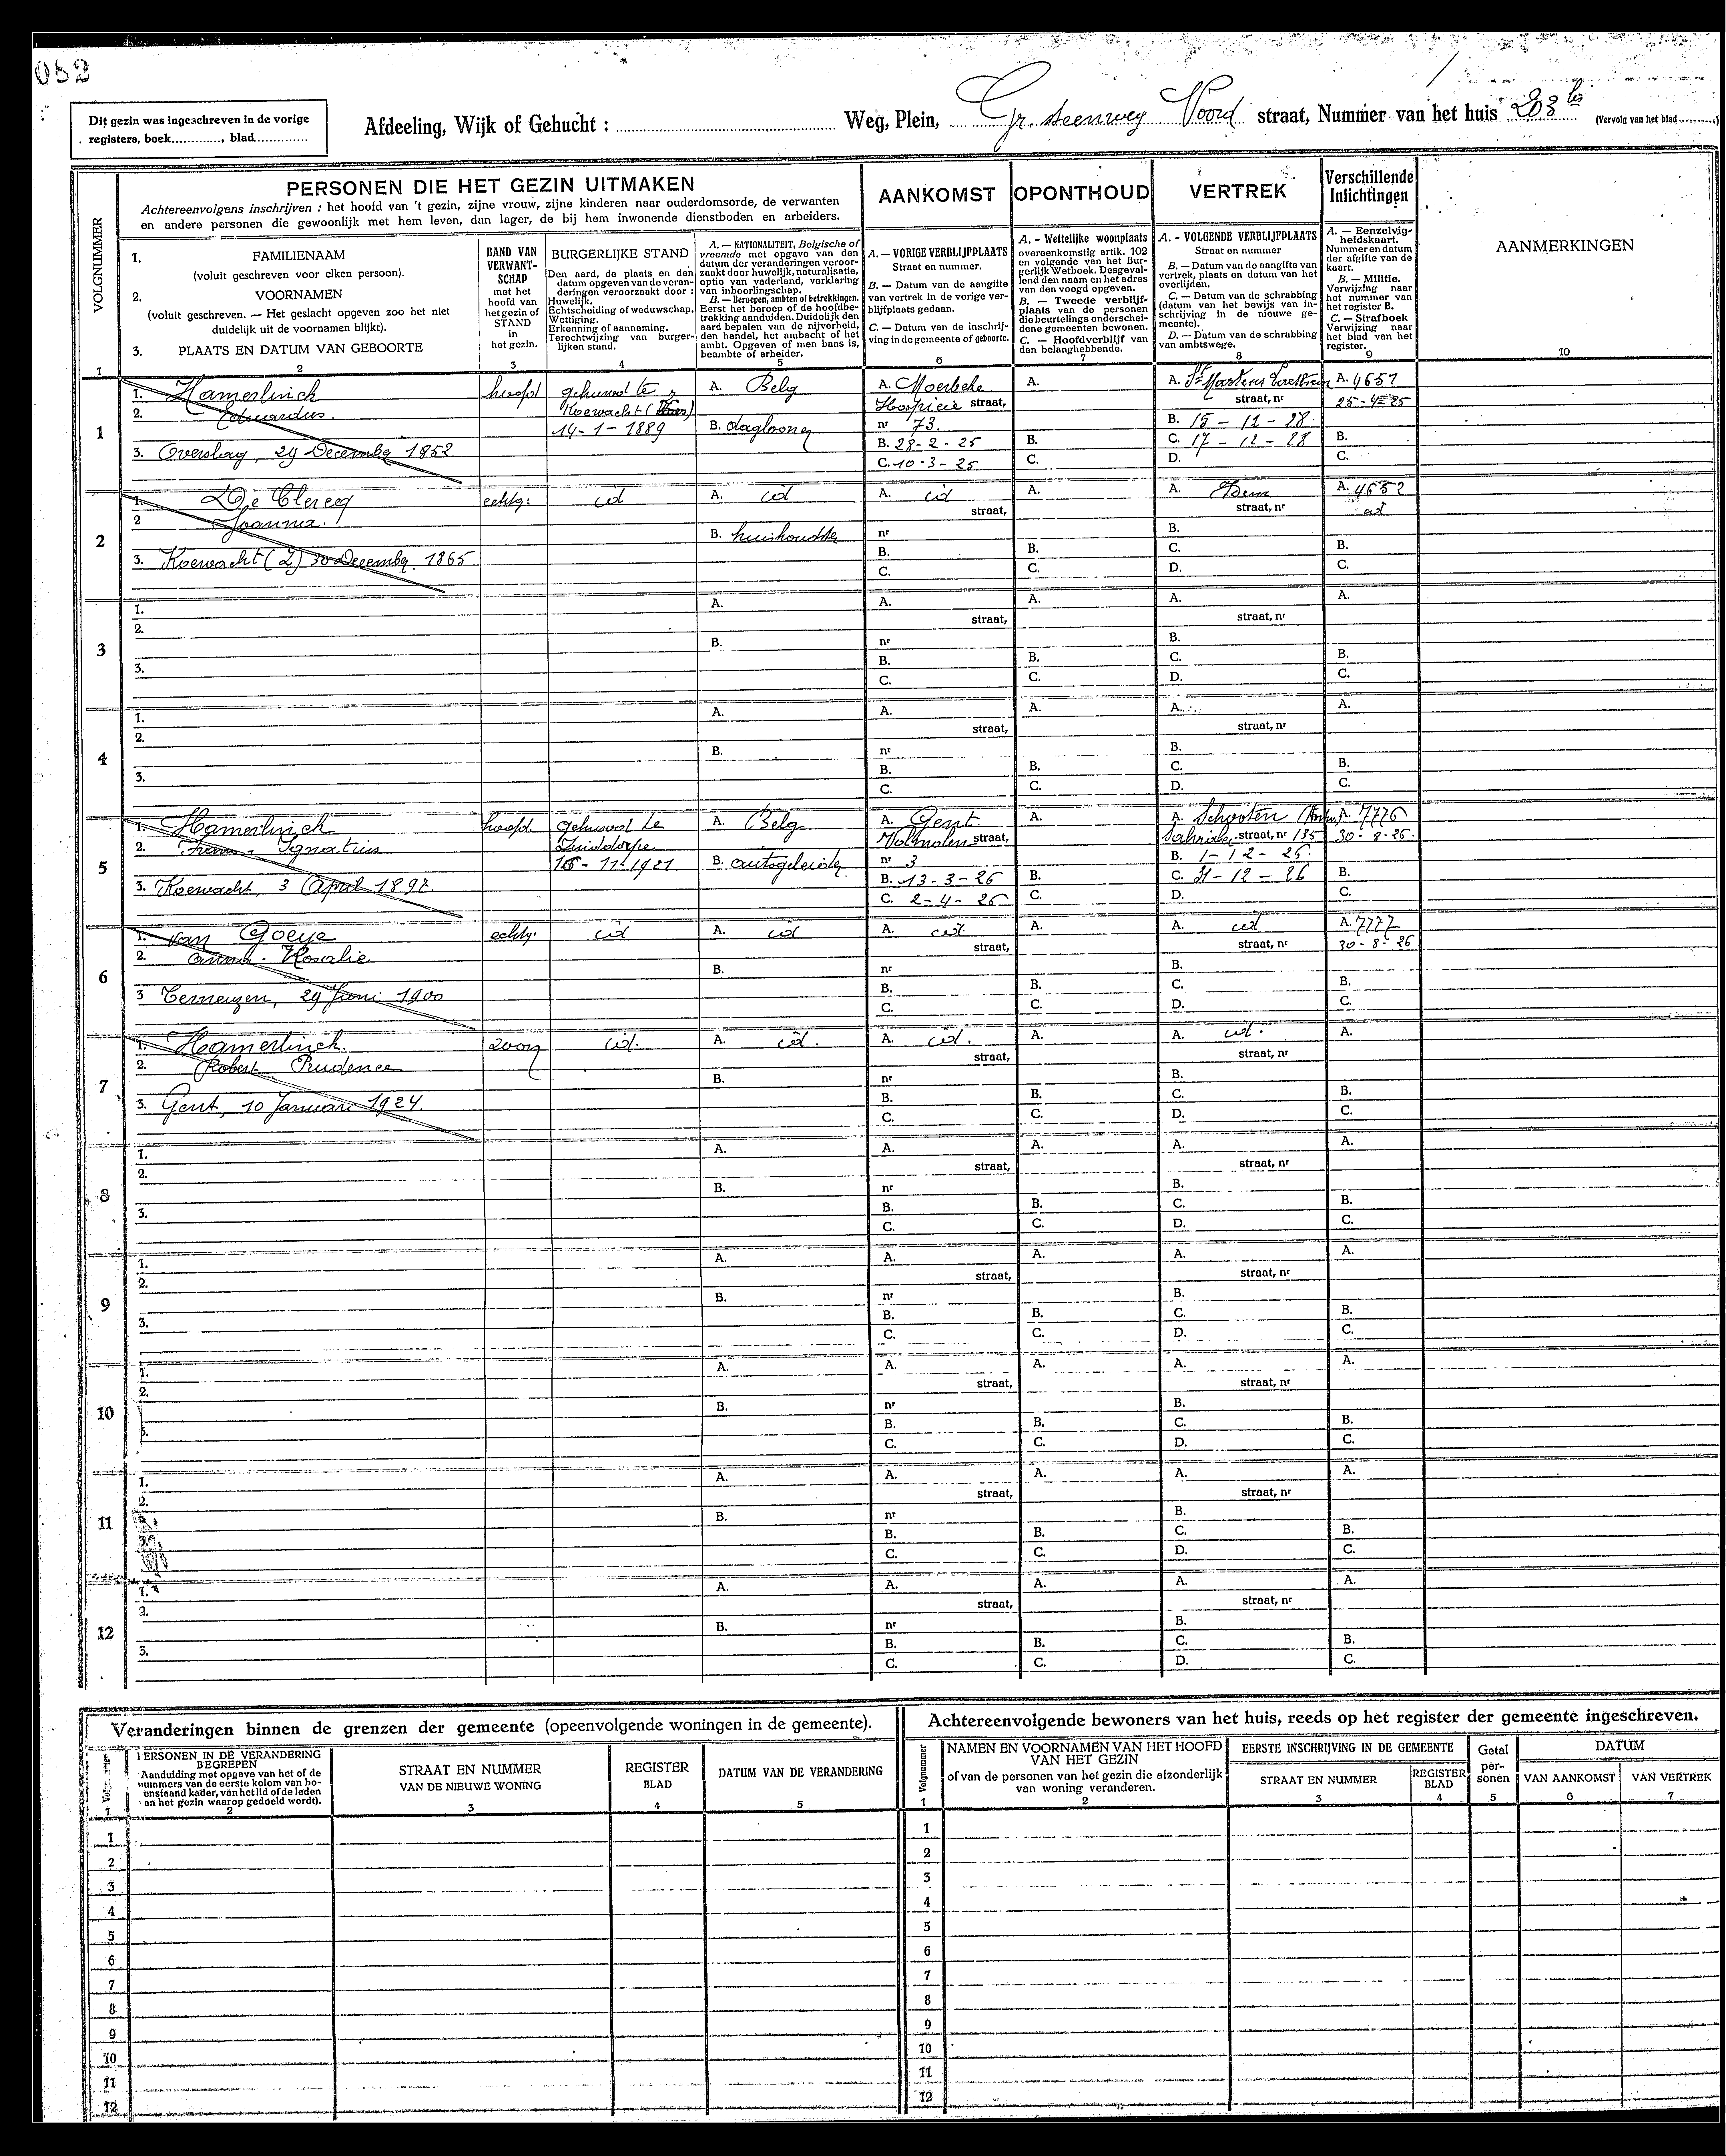 082
Dit gezin was ingeschreven in de vorige
registers, boek............, blad.............
Afdeeling, Wijk of Gehucht : ........................ Weg, Plein, Gr. steenweg Noord straat, Nummer van het huis 203 bis (Vervolg van het blad..........)
VOLGNUMMER
PERSONEN DIE HET GEZIN UITMAKEN
Achtereenvolgens inschrijven : het hoofd van 't gezin, zijne vrouw, zijne kinderen naar ouderdomsorde, de verwanten
en andere personen die gewoonlijk met hem leven, dan lager, de bij hem inwonende dienstboden en arbeiders.
AANKOMST
OPONTHOUD
VERTREK
Verschillende
Inlichtingen
AANMERKINGEN
1. FAMILIENAAM
(voluit geschreven voor elken persoon).
2. VOORNAMEN
(voluit geschreven. — Het geslacht opgeven zoo het niet
duidelijk uit de voornamen blijkt).
3. PLAATS EN DATUM VAN GEBOORTE
BAND VAN
VERWANT-
SCHAP
met het
hoofd van
het gezin of
STAND
in
het gezin.
BURGERLIJKE STAND
Den aard, de plaats en den
datum opgeven van de veran-
deringen veroorzaakt door :
Huwelijk.
Echtscheiding of weduwschap.
Wettiging.
Erkenning of aanneming.
Terechtwijzing van burger-
lijken stand.
A. — NATIONALITEIT. Belgische of
vreemde met opgave van den
datum der veranderingen veroor-
zaakt door huwelijk, naturalisatie,
optie van vaderland, verklaring
van inboorlingschap.
B. — Beroepen, ambten of betrekkingen.
Eerst het beroep of de hoofdbe-
trekking aanduiden. Duidelijk den
aard bepalen van de nijverheid,
den handel, het ambacht of het
ambt. Opgeven of men baas is,
beambte of arbeider.
A. — VORIGE VERBLIJFPLAATS
Straat en nummer.
B. — Datum van de aangifte
van vertrek in de vorige ver-
blijfplaats gedaan.
C. — Datum van de inschrij-
ving in de gemeente of geboorte.
A. - Wettelijke woonplaats
overeenkomstig artik. 102
en volgende van het Bur-
gerlijk Wetboek. Desgeval-
lend den naam en het adres
van den voogd opgeven.
B. — Tweede verblijf-
plaats van de personen
die beurtelings onderschei-
dene gemeenten bewonen.
C. — Hoofdverblijf van
den belanghebbende.
A. - VOLGENDE VERBLIJFPLAATS
Straat en nummer
B. — Datum van de aangifte van
vertrek, plaats en datum van het
overlijden.
C. — Datum van de schrabbing
(datum van het bewijs van in-
schrijving in de nieuwe ge-
meente).
D. — Datum van de schrabbing
van ambtswege.
A. — Eenzelvig-
heidskaart.
Nummer en datum
der afgifte van de
kaart.
B. — Militie.
Verwijzing naar
het nummer van
het register B.
C. — Strafboek
Verwijzing naar
het blad van het
register.
1 2 3 4 5 6 7 8 9 10
1
1. Hamerlinck hoofd gehuwd te A. Belg A. Moerbeke A. A. A. 4651
2. Eduardus. Koewacht Hospicie straat, straat, nr 25-4-25
14-1-1889 B. daglooner nr 73. B. 15-12-28.
3. Overslag, 29 December 1852 B. 28-2-25 B. C. 17-12-28 B.
C. 10-3-25 C. D. C.
2
1. De Clercq echtg: id A. id A. id A. A. Idem A. 4652
2 Joanna. straat, straat, nr id
B. huishoudster nr B.
3. Koewacht (Z) 30 December 1865 B. B. C. B.
C. C. D. C.
3
1. A. A. A. A. A.
2. straat, straat, nr
B. nr B.
3. B. B. C. B.
C. C. D. C.
4
1. A. A. A. A. A.
2. straat, straat, nr
B. nr B.
3. B. B. C. B.
C. C. D. C.
5
1. Hamerlinck hoofd. gehuwd te A. Belg A. Gent A. A. Schooten A. 7776
2. Frans - Ignatius Zuiddorpe straat, straat, nr 135 30-8-26.
16-11-1921 B. autogeleider nr 3 B. 1-12-26.
3. Koewacht, 3 April 1892. B. 13-3-26 B. C. 31-12-26 B.
C. 2-4-26 C. D. C.
6
1. van Goeye echtg. id A. id A. id. A. A. id A. 7777
2. Anna - Rosalie straat, straat, nr 30-8-26
B. nr B.
3 Terneuzen, 29 Juni 1900 B. B. C. B.
C. C. D. C.
7
1. Hamerlinck. zoon id. A. id. A. id. A. A. id. A.
2. Robert Prudence straat, straat, nr
B. nr B.
3. Gent, 10 Januari 1924. B. B. C. B.
C. C. D. C.
8
1. A. A. A. A. A.
2. straat, straat, nr
B. nr B.
3. B. B. C. B.
C. C. D. C.
9
1. A. A. A. A. A.
2. straat, straat, nr
B. nr B.
3. B. B. C. B.
C. C. D. C.
10
1. A. A. A. A. A.
2. straat, straat, nr
B. nr B.
3. B. B. C. B.
C. C. D. C.
11
1. A. A. A. A. A.
2. straat, straat, nr
B. nr B.
B. B. C. B.
C. C. D. C.
12
1. A. A. A. A. A.
2. straat, straat, nr
B. nr B.
3. B. B. C. B.
C. C. D. C.
Veranderingen binnen de grenzen der gemeente (opeenvolgende woningen in de gemeente).
PERSONEN IN DE VERANDERING
BEGREPEN
Aanduiding met opgave van het of de
nummers van de eerste kolom van bo-
enstaand kader, van het lid of de leden
an het gezin waarop gedoeld wordt).
STRAAT EN NUMMER
VAN DE NIEUWE WONING
REGISTER
BLAD
DATUM VAN DE VERANDERING
1 2 3 4 5
1
2
3
4
5
6
7
8
9
10
11
12
Achtereenvolgende bewoners van het huis, reeds op het register der gemeente ingeschreven.
Volgnummer
NAMEN EN VOORNAMEN VAN HET HOOFD
VAN HET GEZIN
of van de personen van het gezin die afzonderlijk
van woning veranderen.
EERSTE INSCHRIJVING IN DE GEMEENTE
STRAAT EN NUMMER
REGISTER
BLAD
Getal
per-
sonen
DATUM
VAN AANKOMST
VAN VERTREK
1 2 3 4 5 6 7
1
2
3
4
5
6
7
8
9
10
11
12